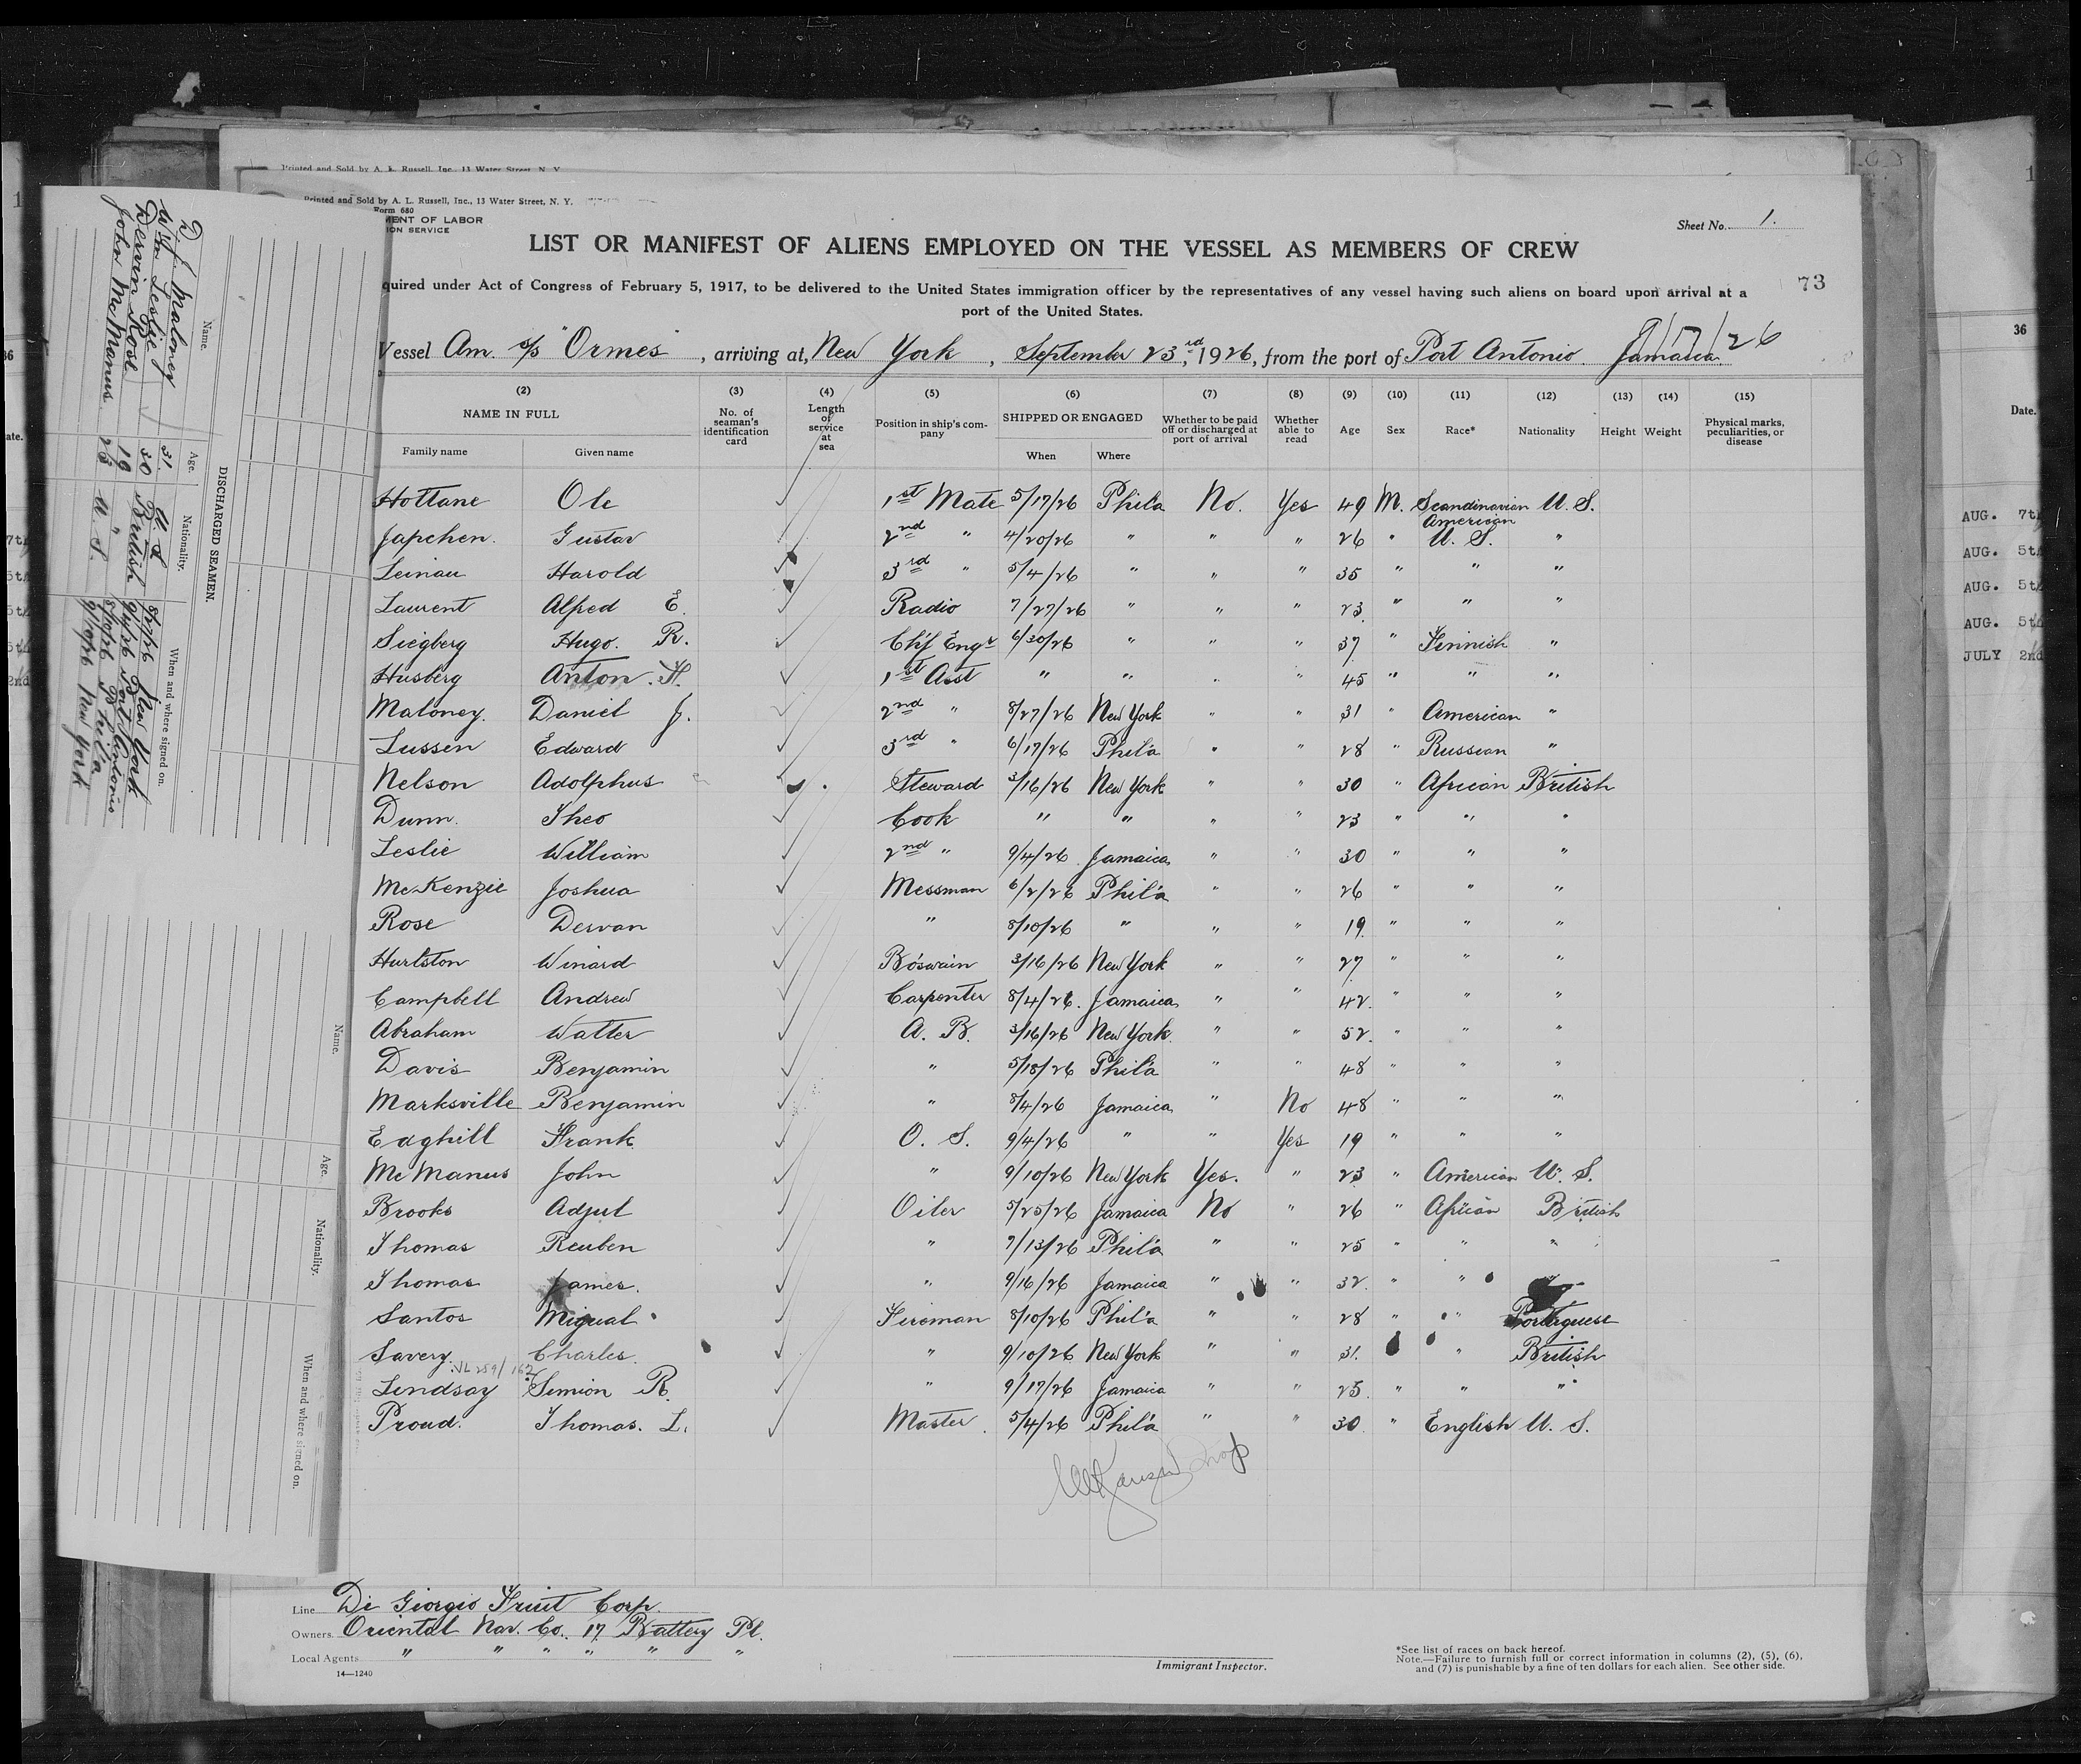 Printed and Sold by A. L. Russell, Inc., 13 Water Street, N. Y.
Printed and Sold by A. L. Russell, Inc., 13 Water Street, N. Y.
Form 680
MENT OF LABOR
ION SERVICE
Sheet No. 1.
LIST OR MANIFEST OF ALIENS EMPLOYED ON THE VESSEL AS MEMBERS OF CREW
73
quired under Act of Congress of February 5, 1917, to be delivered to the United States immigration officer by the representatives of any vessel having such aliens on board upon arrival at a
port of the United States.
9/17/26
Vessel Am. s/s "Ormes", arriving at, New York, September 23rd, 1926, from the port of Port Antonio Jamaica.
(2) (3) (4) (5) (6) (7) (8) (9) (10) (11) (12) (13) (14) (15)
NAME IN FULL No. of seaman's identification card Length of service at sea Position in ship's company SHIPPED OR ENGAGED Whether to be paid off or discharged at port of arrival Whether able to read Age Sex Race* Nationality Height Weight Physical marks, peculiarities, or disease
Family name Given name When Where
Hottane Ole 1st Mate 5/17/26 Phila No. Yes 49 M. Scandinavian U. S.
American
Japchen. Gustav 2nd " 4/20/26 " " " 26 " U. S. "
Leinau Harold 3rd " 5/4/26 " " " 35 " " "
Laurent Alfred E. Radio 7/27/26 " " " 23 " " "
Siegberg Hugo. R. Chf Engr 6/30/26 " " " 37 " Finnish "
Husberg Anton. H. 1st Asst " " " " 45 " " "
Maloney. Daniel J. 2nd " 8/27/26 New York " " 31 " American "
Lussen Edward 3rd " 6/17/26 Phil'a " " 28 " Russian "
Nelson Adolphus Steward 3/16/26 New York " " 30 " African British
Dunn. Theo Cook " " " " 23 " " "
Leslie William 2nd " 9/4/26 Jamaica " " 30 " " "
McKenzie Joshua Messman 6/2/26 Phil'a " " 26 " " "
Rose Dervan " 8/10/26 " " " 19 " " "
Hurlston Winard Bo'swain 3/16/26 New York " " 27 " " "
Campbell Andrew Carpenter 8/4/26. Jamaica " " 42. " " "
Abraham Walter A. B. 3/16/26 New York. " " 52. " " "
Davis Benjamin " 5/18/26 Phil'a " " 48 " " "
Marksville Benjamin " 8/4/26 Jamaica " No 48 " " "
Edghill Frank O. S. 9/4/26 " " Yes 19 " " "
McManus John " 9/10/26 New York Yes. " 23 " American U. S.
Brooks Adjul Oiler 5/25/26 Jamaica No " 26 " African British
Thomas Reuben " 7/13/26 Phil'a " " 25 " " "
Thomas James. " 9/16/26 Jamaica " " 32 " "
Santos Migual Fireman 8/10/26 Phil'a " " 28 " " Portuguese
Savery. Charles. " 9/10/26 New York " " 31. " British
Lindsay Simion R. " 9/17/26 Jamaica " " 25 " " "
Proud. Thomas. L. Master 5/4/26 Phil'a " " 30 " English U. S.
Line Di Giorgio Fruit Corp.
Owners. Oriental Nav. Co. 17 Battery Pl.
Local Agents " " " " " "
14—1240
Immigrant Inspector.
*See list of races on back hereof.
Note.—Failure to furnish full or correct information in columns (2), (5), (6),
and (7) is punishable by a fine of ten dollars for each alien. See other side.
DISCHARGED SEAMEN.
Name. Age. Nationality. When and where signed on.
D. J. Maloney 31. U. S 8/27/26 New York
Wm Leslie 30 British 9/4/26 Port Antonio
Dervin Rose 19 " 8/10/26 Phila
John McManus 23 U. S. 9/10/26 New York
Name. Age. Nationality. When and where signed on.
36
Date.
AUG. 7th
AUG. 5th
AUG. 5th
AUG. 5th
JULY 2nd